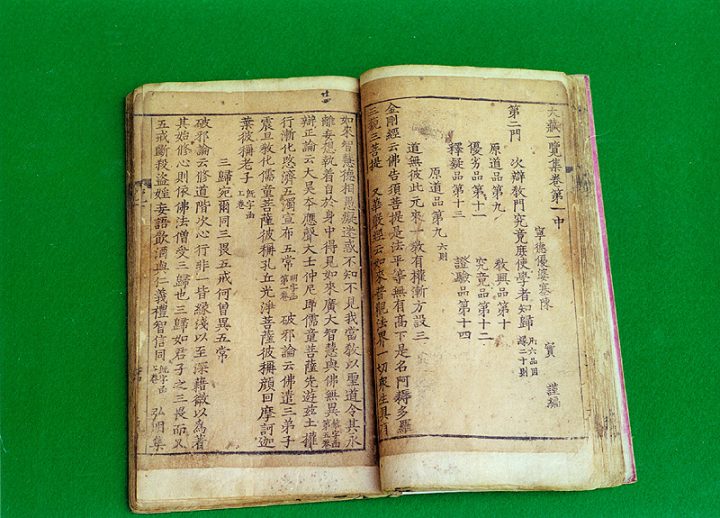 大藏一覽集卷第二中
寧德優婆塞陳 實 謹編
第二門 次辯教門究竟庶使學者知歸 凡六品目 錄二十則
原道品第九 教興品第十
優劣品第十一 究竟品第十二
釋疑品第十三 證驗品第十四
原道品第九 六則
道無彼此元來一教有權漸方設三
金剛經云佛告須菩提是法平等無有高下是名阿耨多羅
三藐三菩提 又華嚴經云如來普觀法界一切衆生具有
如來智慧德相愚癡迷惑不知不見我當教以聖道令其永
離妄想執着自於身中得見如來廣大智慧與佛無異 字函 第五卷
辨正論云大昊本應聲大士仲尼即儒童菩薩先遊茲土權
行漸化愍濟五濁宣布五常 明字函 第一卷 破邪論云佛遣三弟子
震旦教化儒童菩薩彼稱孔丘光淨菩薩彼稱顔回摩訶迦
葉彼稱老子 旣字函 上卷
三歸宛爾同三畏五戒何曾異五常
破邪論云修道階次心行非一皆緣淺以至深藉微以為著
其始修心則依佛法僧受三歸也三歸如君子之三畏而又
五戒斷殺盜婬妄語飲酒與仁義禮智信同 旣字函 上卷 弘明集